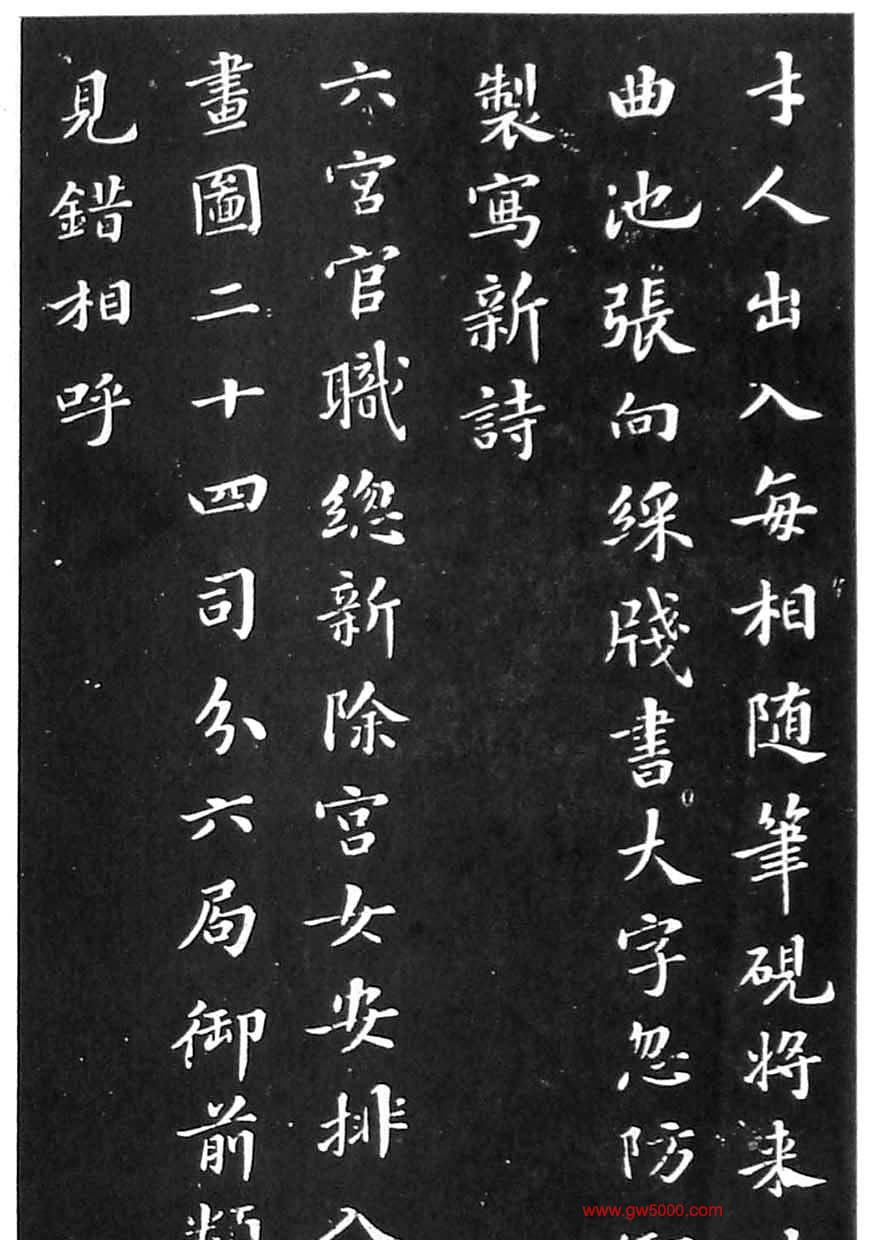 才人出入每相随筆硯將来
曲池張向綵牋書大字忽防
製寫新詩
六宮官職總新除宮女安排入
畫圖二十四司分六局御前頻
見錯相呼
www.gw5000.com